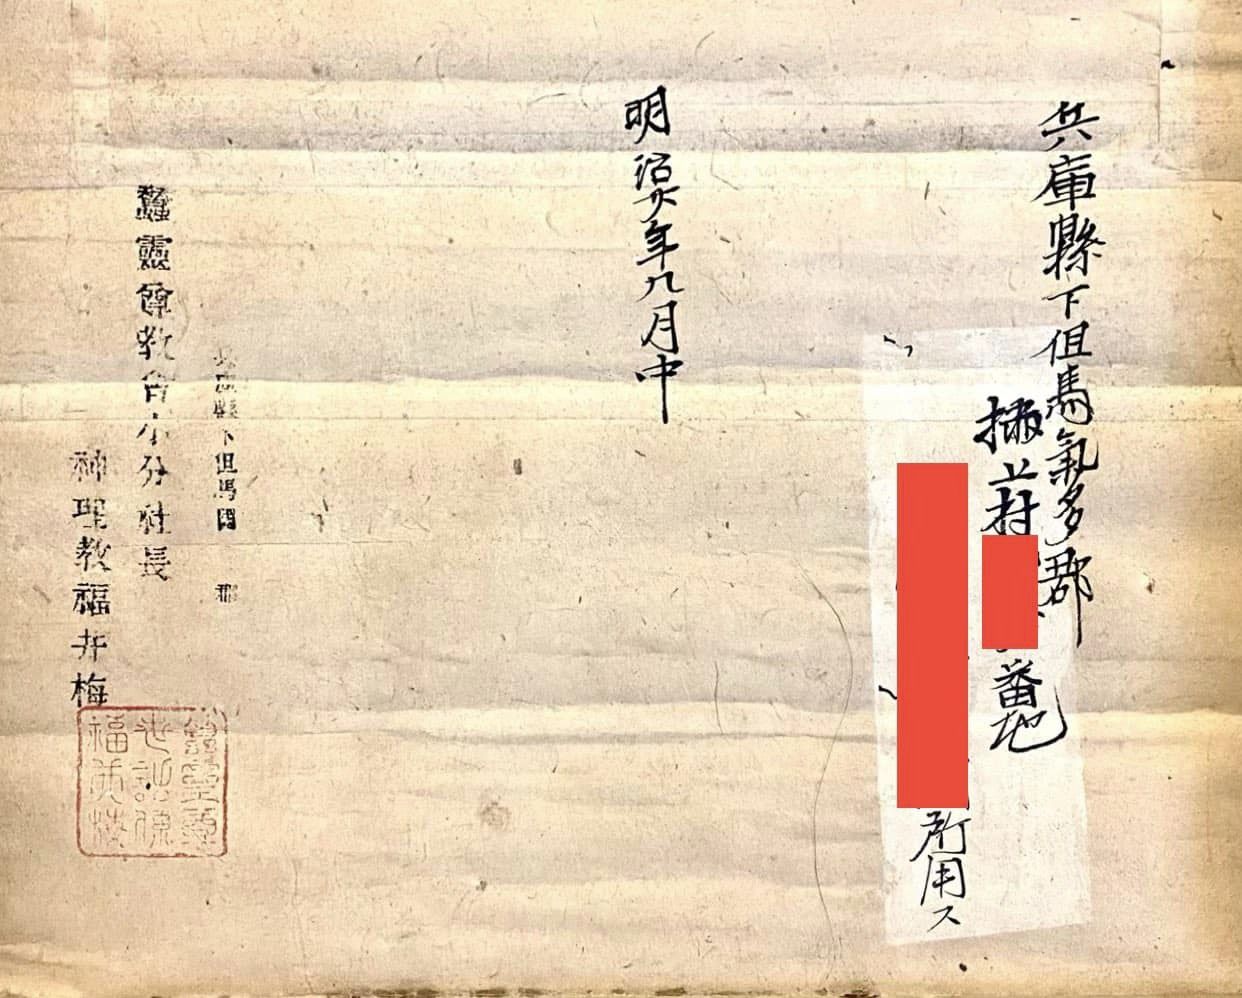 兵庫縣下但馬氣多郡
上村 番地
所用ス
明治 年九月中
兵庫縣下但馬國 郡
蠶靈尊教會小分社長
神理教福井梅
蠶靈尊
世話係
福井梅